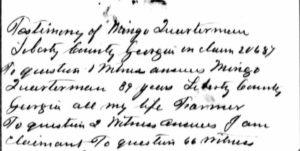 Testimony of Mingo Quarterman
Liberty County Georgia in claim 20687
To question 1 Witness answers Mingo
Quarterman 89 years Liberty County
Georgia all my life Farmer
To question 2 Witness answers I am
Claimant To question 66 Witness